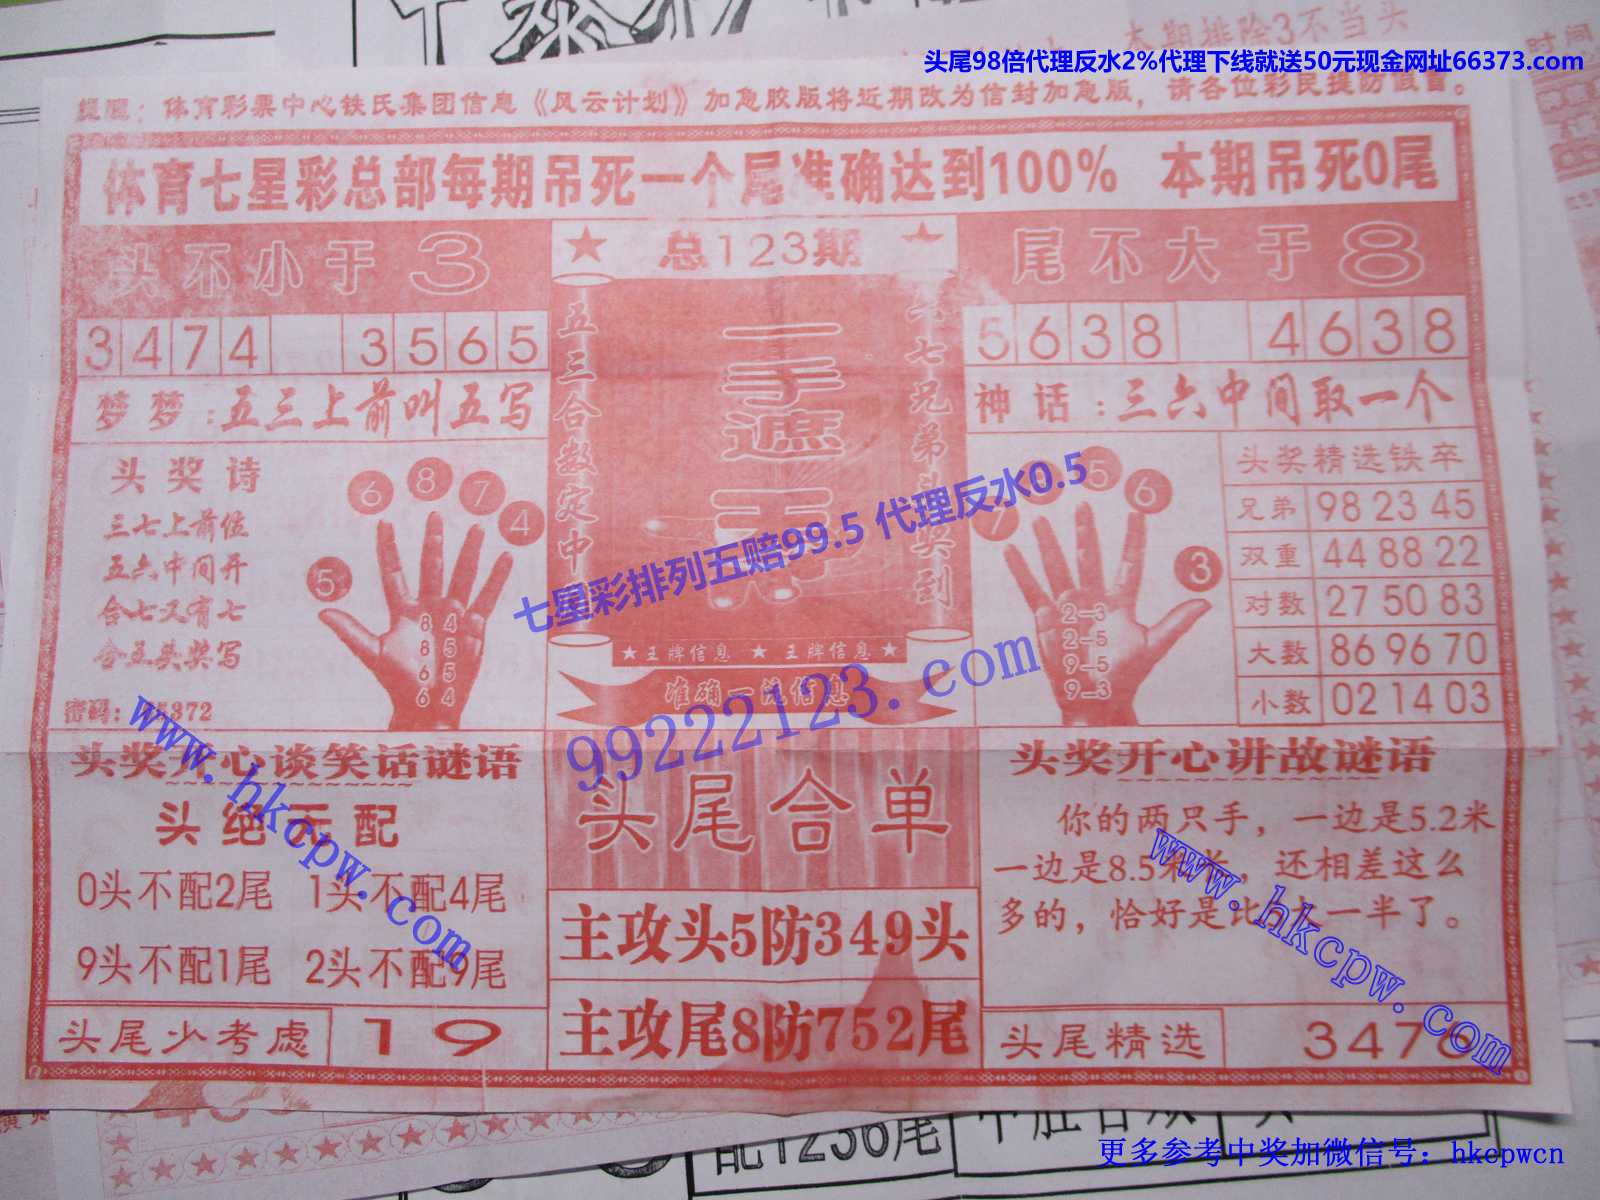 本期排除3不当头
时间
头尾98倍代理反水2%代理下线就送50元现金网址66373.com
提醒：体育彩票中心铁氏集团信息《风云计划》加急胶版将近期改为信封加急版，请各位彩民提防假冒。
体育七星彩总部每期吊死一个尾准确达到100% 本期吊死0尾
头不小于3
总123期
尾不大于8
3474 3565
5638 4638
梦梦：五三上前叫五写
神话：三六中间取一个
五三合数定中
一手遮天
六七兄弟头奖到
头奖诗
三七上前位
五六中间开
合七又有七
合五头奖写
密码：
5 6 8 7 4
8 4
8 5
6 5
6 4
7 5 6 3
2-3
2-5
9-5
9-3
头奖精选铁卒
兄弟 98 23 45
双重 44 88 22
对数 27 50 83
大数 86 96 70
小数 02 14 03
七星彩排列五赔99.5 代理反水0.5
★王牌信息 ★ 王牌信息★
准确一流信息
99222123.com
www.hkcpw.com
头奖开心谈笑话谜语
头绝不配
0头不配2尾 1头不配4尾
9头不配1尾 2头不配9尾
头尾少考虑 19
头尾合单
主攻头5防349头
主攻尾8防752尾
头奖开心讲故谜语
你的两只手，一边是5.2米
一边是8.5米长，还相差这么
多的，恰好是比大一半了。
www.hkcpw.com
头尾精选 3478
配1236尾
更多参考中奖加微信号：hkcpwcn